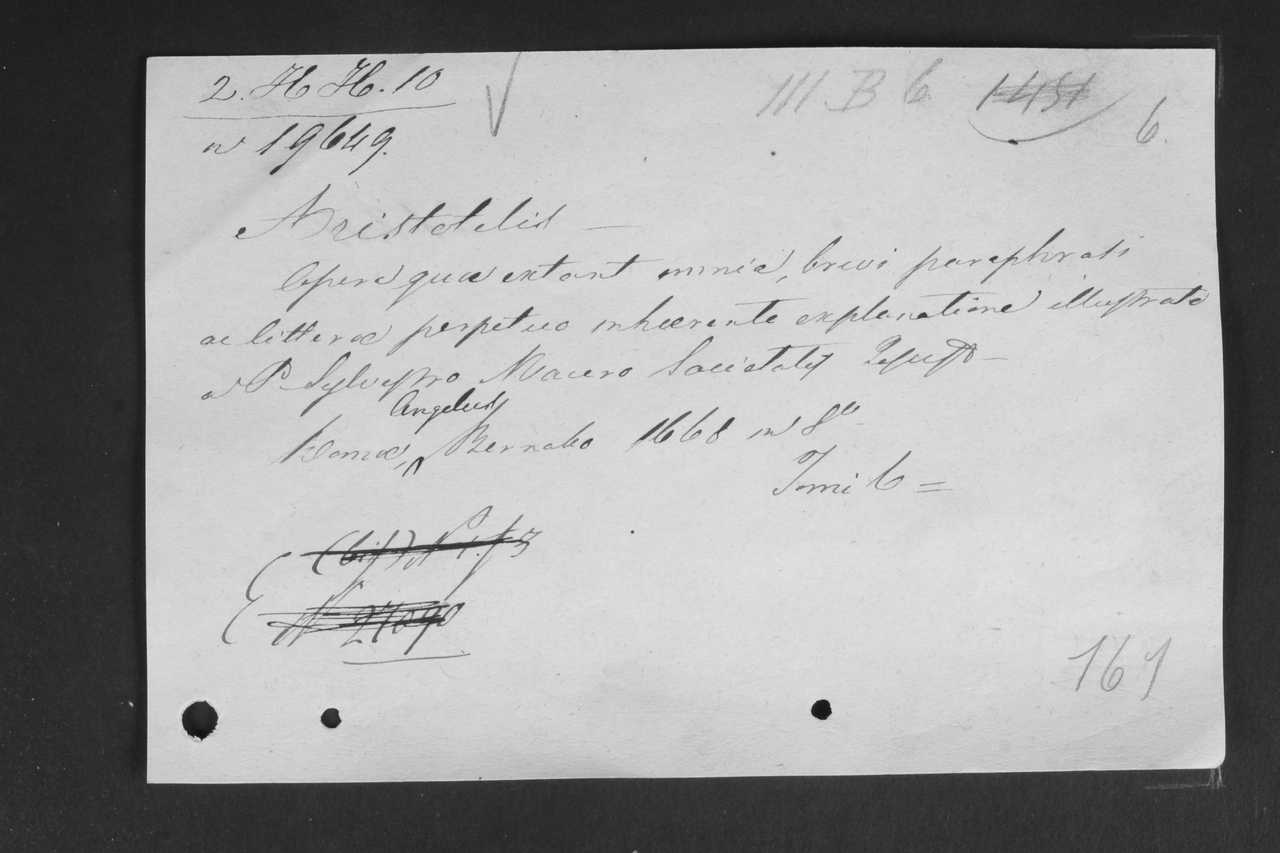 2. H H. 10
III B 6 1451
6.
n 19649.
Aristotelis —
Opera quæ extant omnia, brevi paraphrasi
ac litteræ perpetuo inhærente explanatione illustrata
a P. Sylvestro Mauro Societatis Jesu —
Angelus
Romæ, Bernabo 1668 in 8º
Tomi 6 =
(bis)
N 27090
161